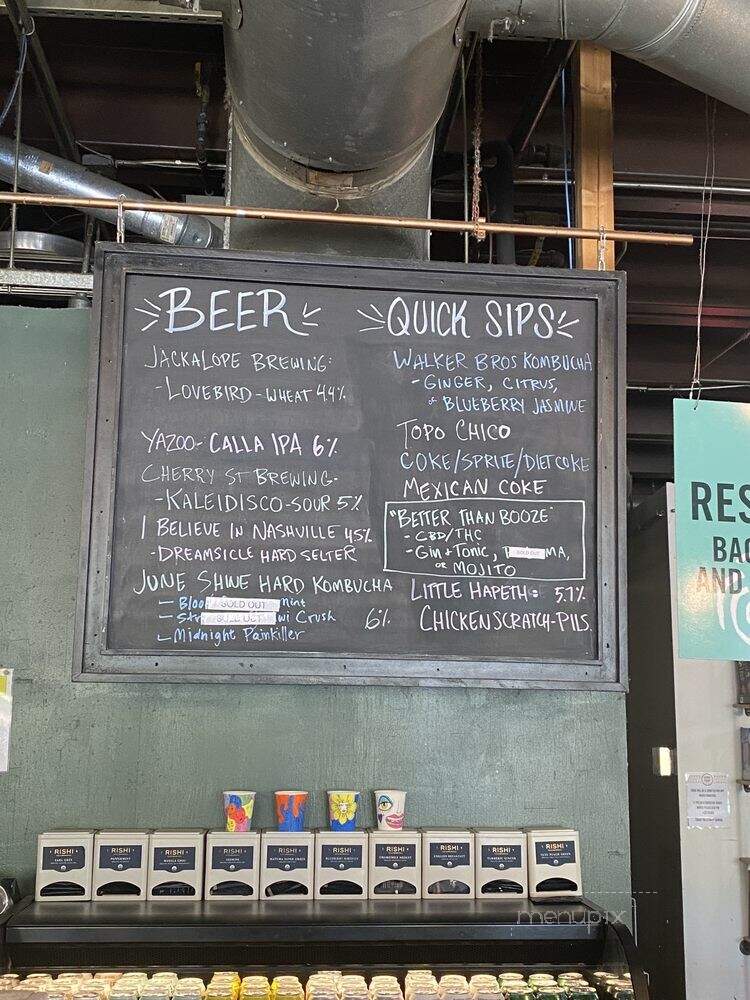 BEER
JACKALOPE BREWING:
- LOVEBIRD - WHEAT 4.4%
YAZOO - CALLA IPA 6%
CHERRY ST BREWING -
- KALEIDISCO - SOUR 5%
I BELIEVE IN NASHVILLE 4.5%
- DREAMSICLE HARD SELTER
JUNE SHINE HARD KOMBUCHA
- Bloo SOLD OUT mint
- Str SOLD OUT wi Crush 6%
- Midnight Painkiller
QUICK SIPS
WALKER BROS KOMBUCHA
- GINGER, CITRUS,
+ BLUEBERRY JASMINE
TOPO CHICO
COKE/SPRITE/DIET COKE
MEXICAN COKE
"BETTER THAN BOOZE"
- CBD/THC
- Gin + Tonic, P SOLD OUT MA,
OR MOJITO
LITTLE HAPETH: 5.7%
CHICKEN SCRATCH - PILS.
RES
BAC
AND
RISHI RISHI RISHI RISHI RISHI RISHI RISHI RISHI RISHI RISHI
EARL GREY PEPPERMINT MASALA CHAI JASMINE MATCHA SUPER GREEN BLUEBERRY HIBISCUS CHAMOMILE MEDLEY ENGLISH BREAKFAST TURMERIC GINGER
menupix